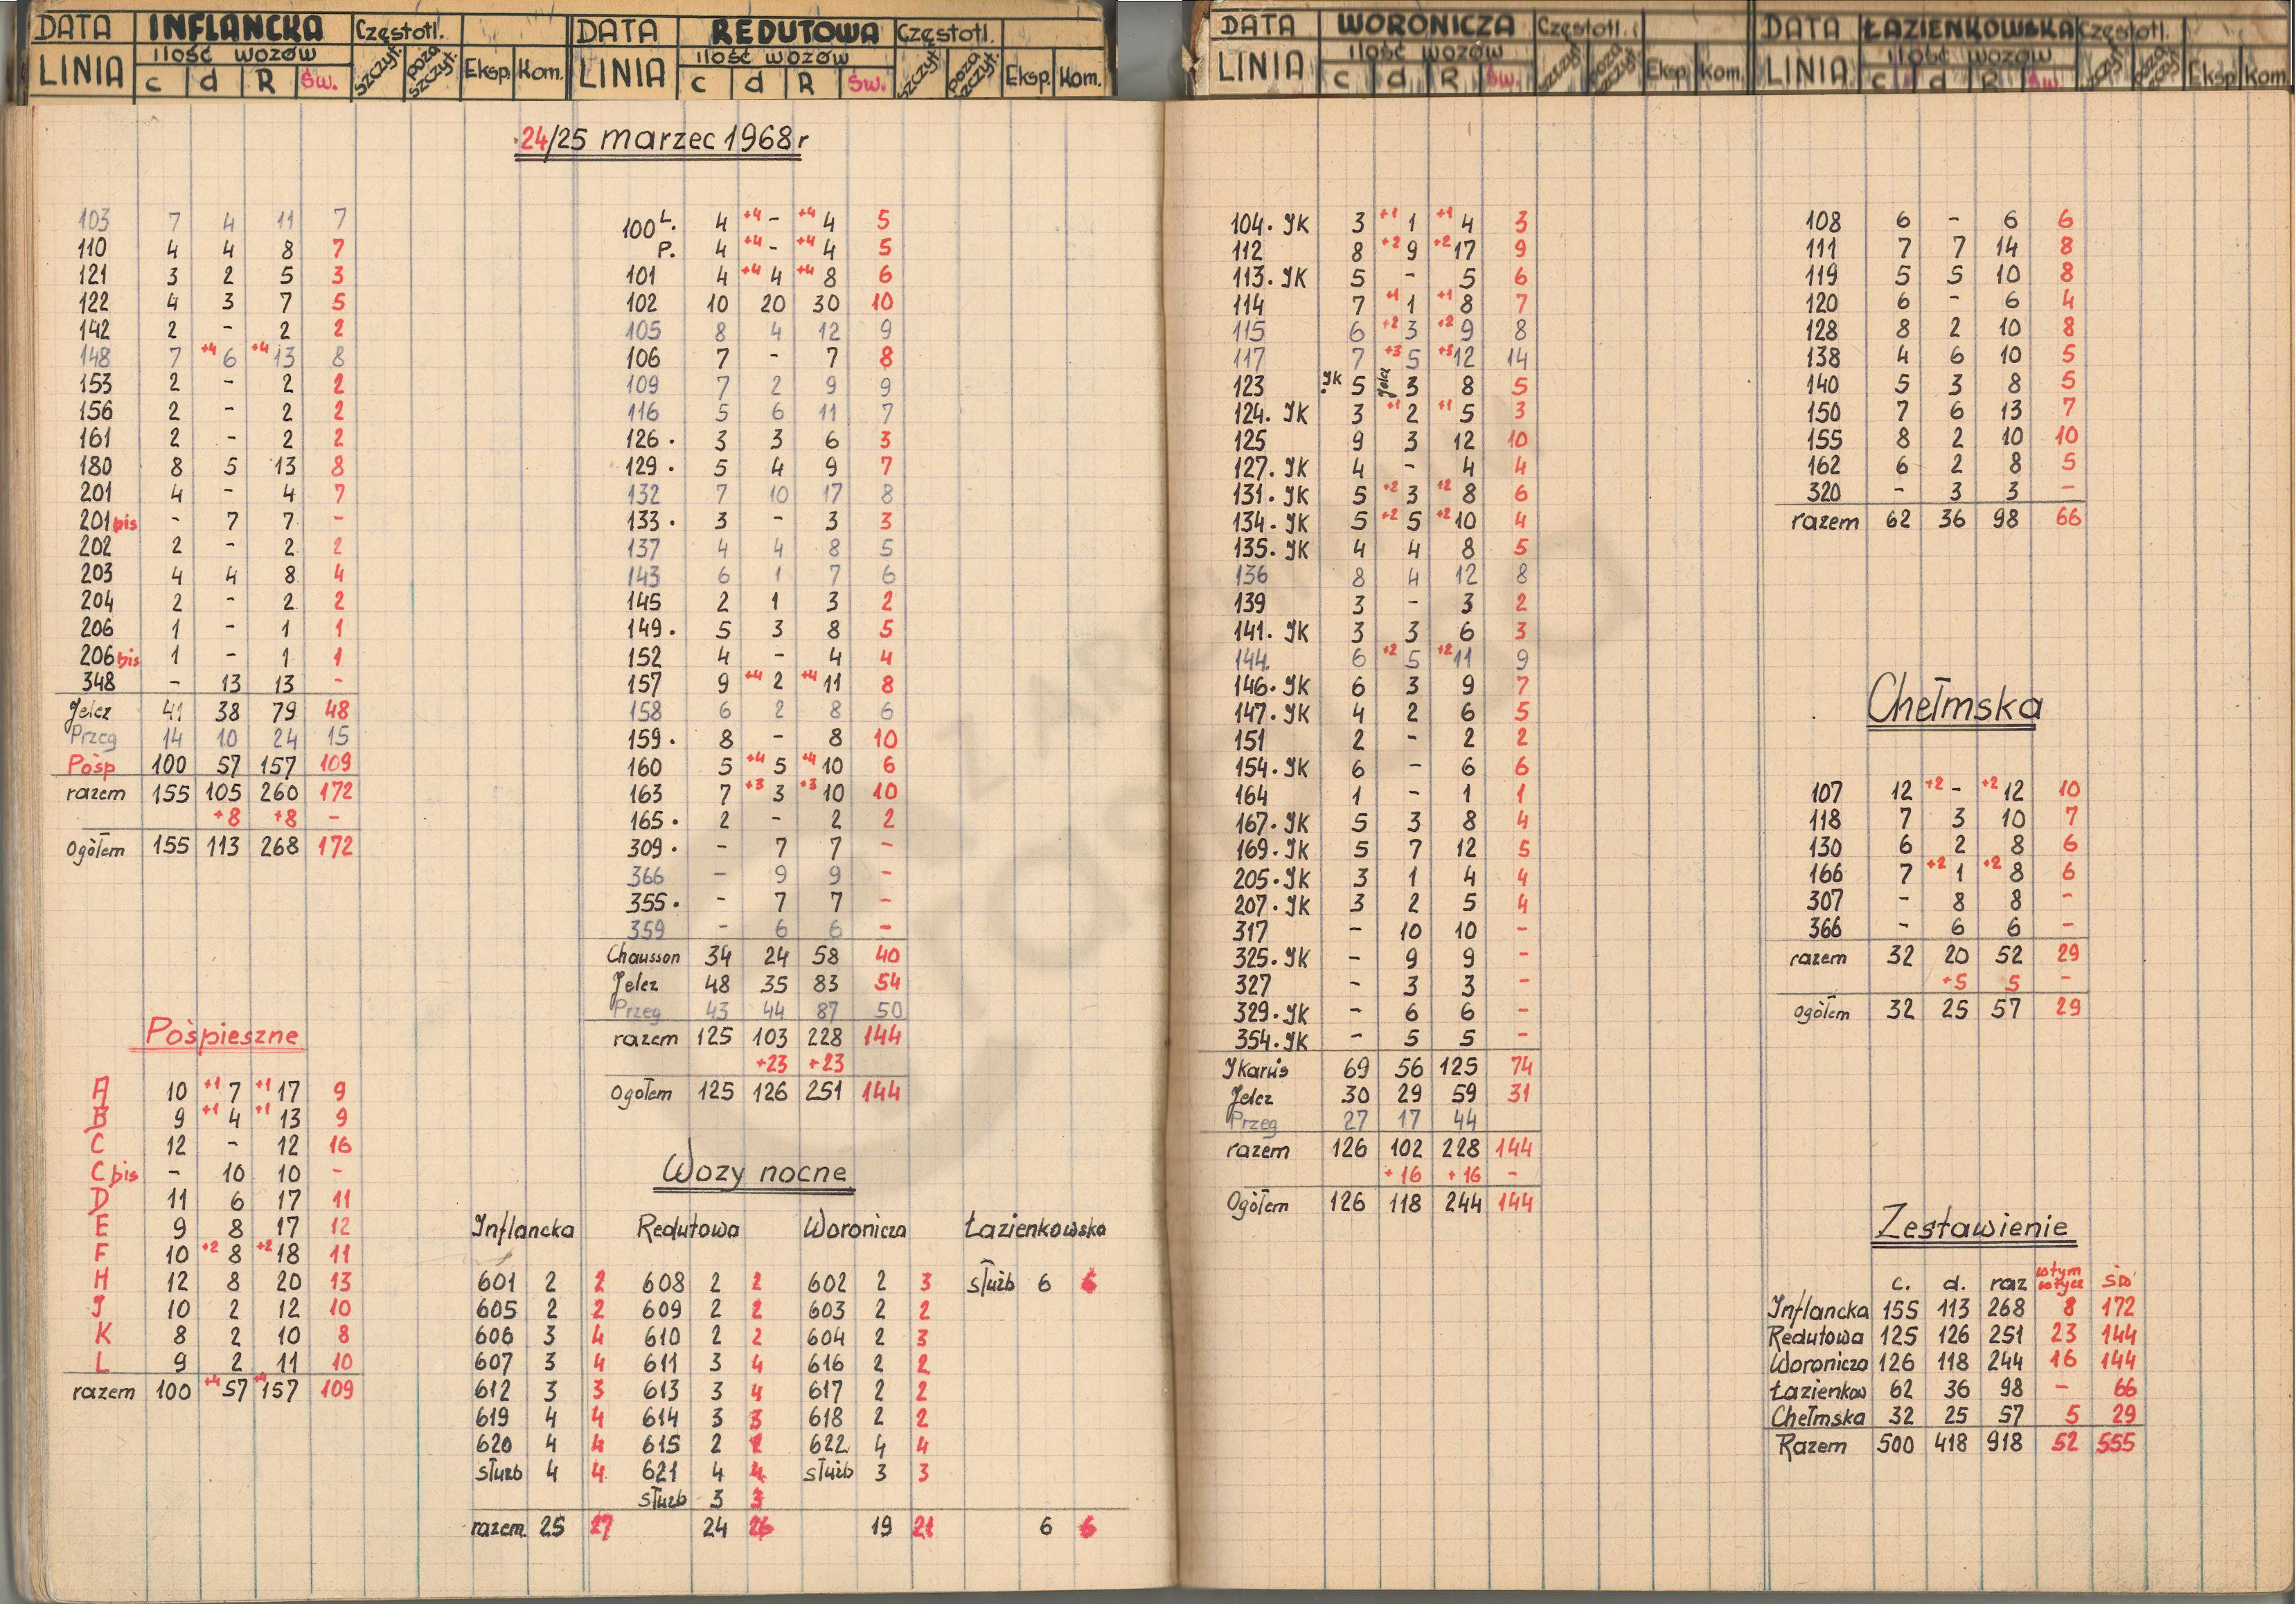 DATA INFLANCKA Częstotl.
LINIA ilość wozów szczyt. poza szczyt. Eksp. Kom.
c d R św.
DATA REDUTOWA Częstotl.
LINIA ilość wozów szczyt. poza szczyt. Eksp. Kom.
c d R św.
DATA WORONICZA Częstotl.
LINIA ilość wozów szczyt poza szczyt. Eksp. Kom.
c d R św.
DATA ŁAZIENKOWSKA Częstotl.
LINIA ilość wozów szczyt poza szczyt. Eksp Kom.
c d R św.
24/25 marzec 1968 r
103 7 4 11 7
110 4 4 8 7
121 3 2 5 3
122 4 3 7 5
142 2 - 2 2
148 7 +4 6 +4 13 8
153 2 - 2 2
156 2 - 2 2
161 2 - 2 2
180 8 5 13 8
201 4 - 4 7
201 bis - 7 7 -
202 2 - 2 2
203 4 4 8 4
204 2 - 2 2
206 1 - 1 1
206 bis 1 - 1 1
348 - 13 13 -
Jelcz 41 38 79 48
Przeg 14 10 24 15
Pośp 100 57 157 109
razem 155 105 260 172
+8 +8 -
Ogółem 155 113 268 172
Pośpieszne
A 10 +1 7 +1 17 9
B 9 +1 4 +1 13 9
C 12 - 12 16
C bis - 10 10 -
D 11 6 17 11
E 9 8 17 12
F 10 +2 8 +2 18 11
H 12 8 20 13
J 10 2 12 10
K 8 2 10 8
L 9 2 11 10
razem 100 +4 57 +4 157 109
100 L. 4 +4 - +4 4 5
P. 4 +4 - +4 4 5
101 4 +4 4 +4 8 6
102 10 20 30 10
105 8 4 12 9
106 7 - 7 8
109 7 2 9 9
116 5 6 11 7
126. 3 3 6 3
129. 5 4 9 7
132 7 10 17 8
133. 3 - 3 3
137 4 4 8 5
143 6 1 7 6
145 2 1 3 2
149. 5 3 8 5
152 4 - 4 4
157 9 +4 2 +4 11 8
158 6 2 8 6
159. 8 - 8 10
160 5 +4 5 +4 10 6
163 7 +3 3 +3 10 10
165. 2 - 2 2
309. - 7 7 -
366 - 9 9 -
355. - 7 7 -
359 - 6 6 -
Chausson 34 24 58 40
Jelcz 48 35 83 54
Przeg 43 44 87 50
razem 125 103 228 144
+23 +23
Ogółem 125 126 251 144
Wozy nocne
Inflancka Redutowa Woronicza Łazienkowska
601 2 2 608 2 2 602 2 3 służb 6 6
605 2 2 609 2 2 603 2 2
606 3 4 610 2 2 604 2 3
607 3 4 611 3 4 616 2 2
612 3 3 613 3 4 617 2 2
619 4 4 614 3 3 618 2 2
620 4 4 615 2 2 622 4 4
służb 4 4 621 4 4 służb 3 3
służb 3 3
razem 25 27 24 26 19 21 6 6
104. JK 3 +1 1 +1 4 3
112 8 +2 9 +2 17 9
113. JK 5 - 5 6
114 7 +1 1 +1 8 7
115 6 +2 3 +2 9 8
117 7 +3 5 +3 12 14
123 .JK 5 Jelcz 3 8 5
124. JK 3 +1 2 +1 5 3
125 9 3 12 10
127. JK 4 - 4 4
131. JK 5 +2 3 +2 8 6
134. JK 5 +2 5 +2 10 4
135. JK 4 4 8 5
136 8 4 12 8
139 3 - 3 2
141. JK 3 3 6 3
144. 6 +2 5 +2 11 9
146. JK 6 3 9 7
147. JK 4 2 6 5
151 2 - 2 2
154. JK 6 - 6 6
164 1 - 1 1
167. JK 5 3 8 4
169. JK 5 7 12 5
205. JK 3 1 4 4
207. JK 3 2 5 4
317 - 10 10 -
325. JK - 9 9 -
327 - 3 3 -
329. JK - 6 6 -
354. JK - 5 5 -
Jkarus 69 56 125 74
Jelcz 30 29 59 31
Przeg 27 17 44
razem 126 102 228 144
+16 +16 -
Ogółem 126 118 244 144
108 6 - 6 6
111 7 7 14 8
119 5 5 10 8
120 6 - 6 4
128 8 2 10 8
138 4 6 10 5
140 5 3 8 5
150 7 6 13 7
155 8 2 10 10
162 6 2 8 5
320 - 3 3 -
razem 62 36 98 66
Chełmska
107 12 +2 - +2 12 10
118 7 3 10 7
130 6 2 8 6
166 7 +2 1 +2 8 6
307 - 8 8 -
366 - 6 6 -
razem 32 20 52 29
+5 5 -
ogółem 32 25 57 29
Zestawienie
c. d. raz w tym św
Inflancka 155 113 268 8 172
Redutowa 125 126 251 23 144
Woronicza 126 118 244 16 144
Łazienkow 62 36 98 - 66
Chełmska 32 25 57 5 29
Razem 500 418 918 52 555